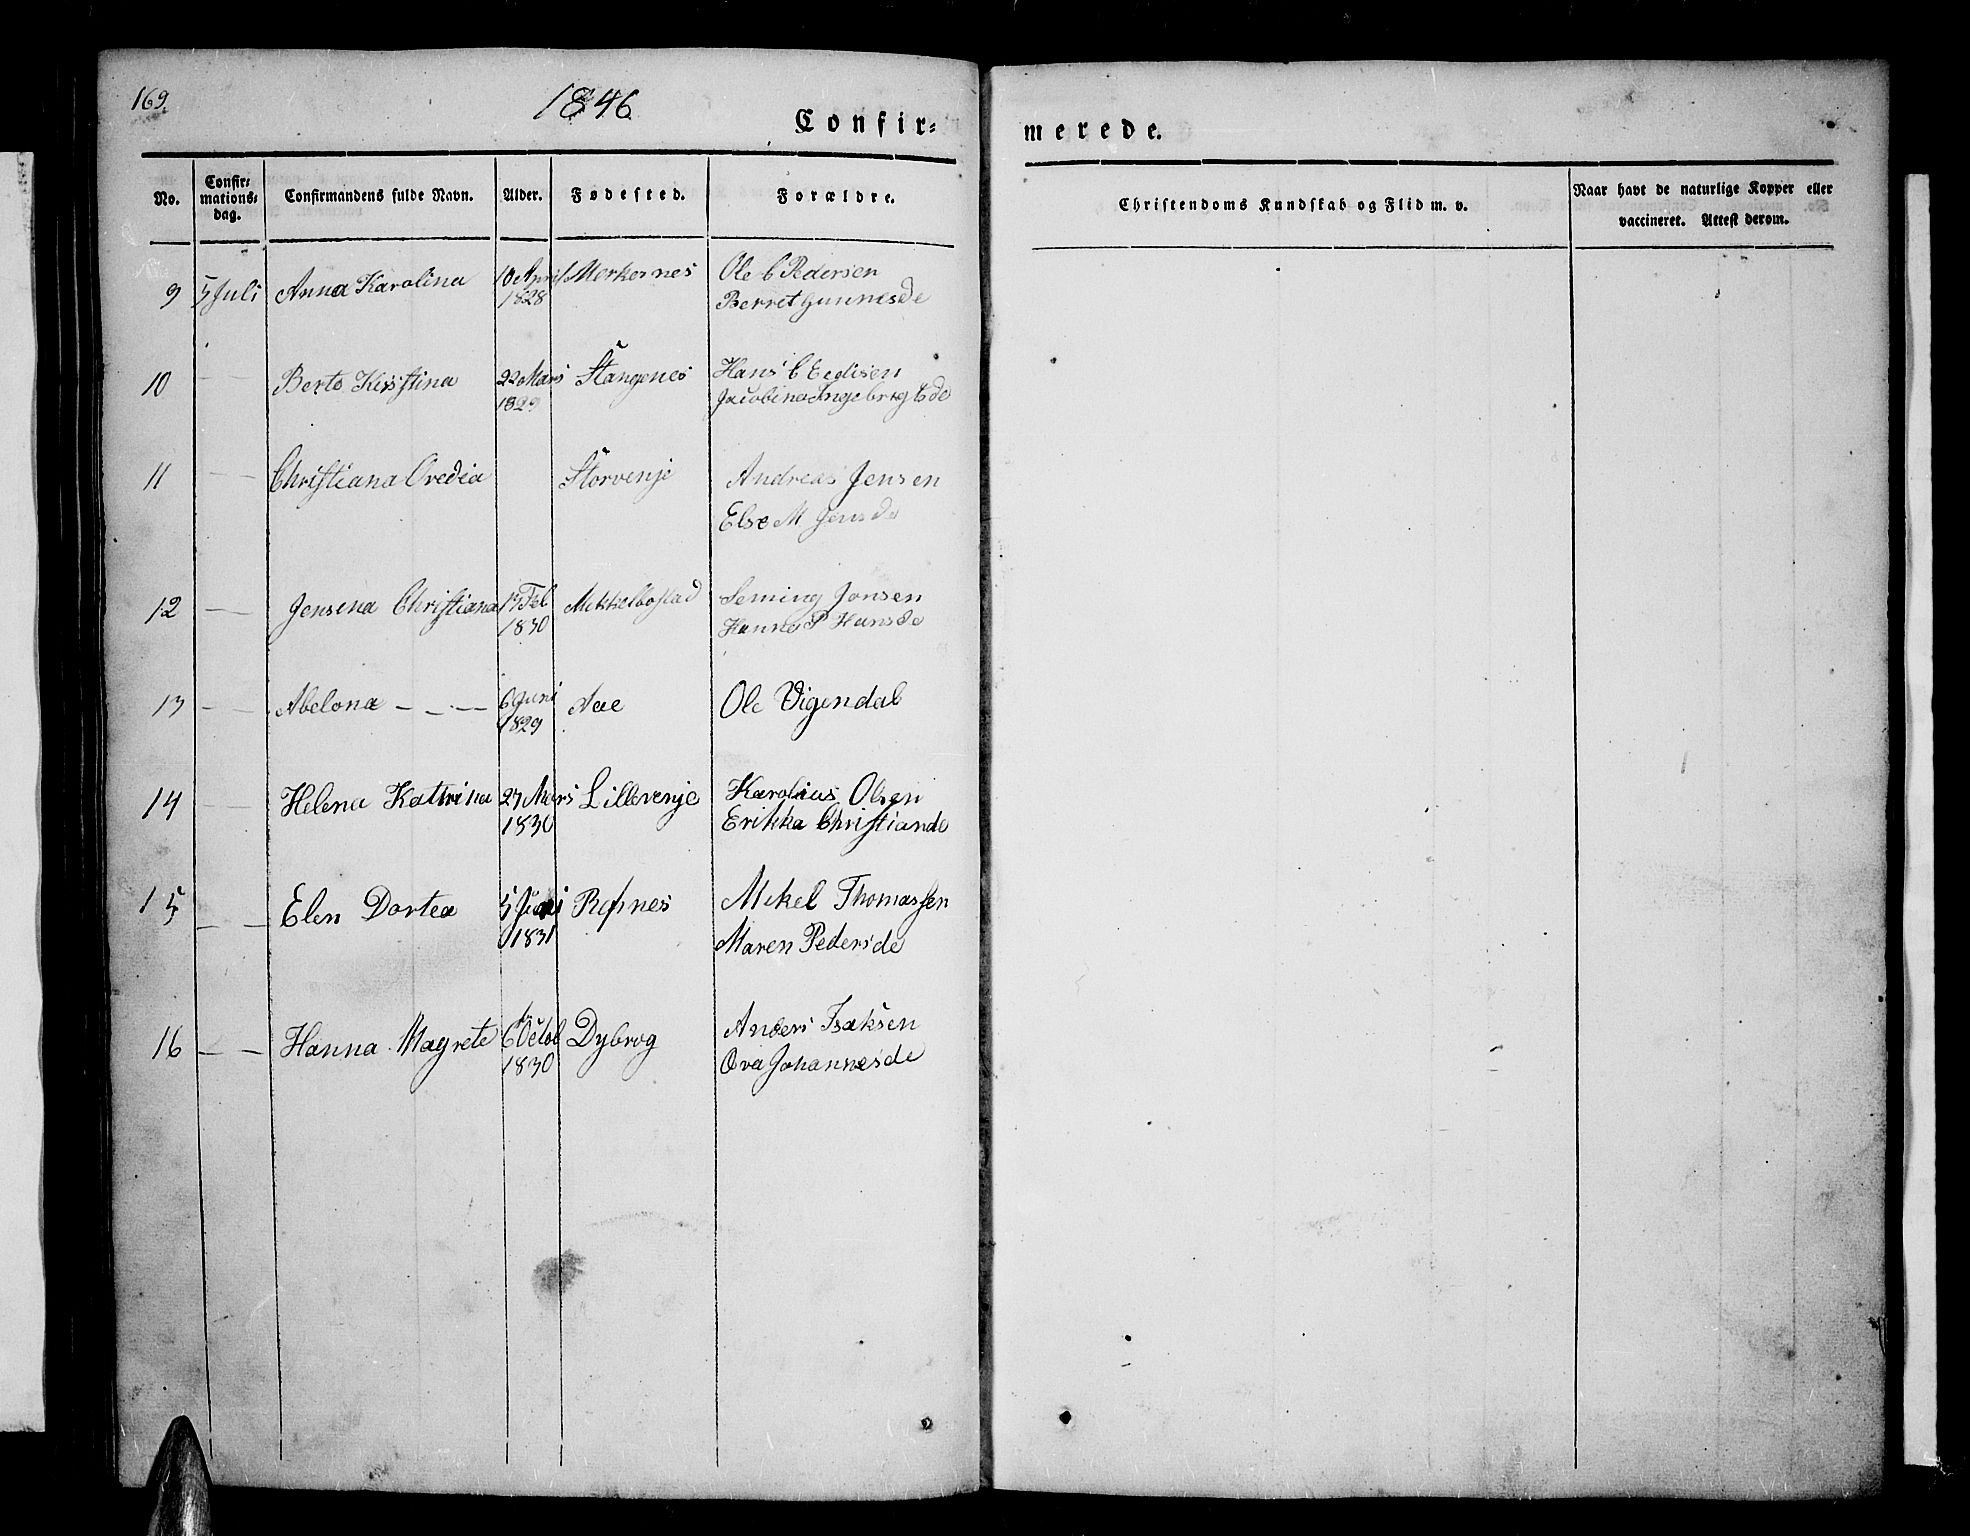 169.
1846
Confir=
merede.
No.
Confir=
mations=
dag.
Confirmandens fulde Navn.
Alder.
Fødested.
Forældre.
Christendoms Kundskab og Flid m. v.
Naar havt de naturlige Kopper eller
vaccineret. Attest derom.
9 5 Juli Anna Karolina 10 April Merkesnes Ole C Pedersen
1828 Berret Gunnesde
10 — — Berto Kisstina 22 Mars Stangenes Hans C Eedisen
1829 Jacobina Ingebrigtsde
11 — — Christiana Ovedia Storvenje Andreas Jensen
Else M Jensde
12 — — Jensena Christiana 17 Feb Mikkelbostad Seming Jonsen
1830 Hanna P Hansde
13 — — Abelona — — — 6 Juni Aae Ole Vigendal
1829
14 — — Helena Katrina 27 Mars Lillevenje Karolius Olsen
1830 Erikka Christiande
15 — — Elen Dortea 5 Refsnes Mekel Thomassen
1831 Maren Pedersde
16 — — Hanna Magrete 6 Octob Dybrog Anders Isaksen
1830 Ova Johannesde